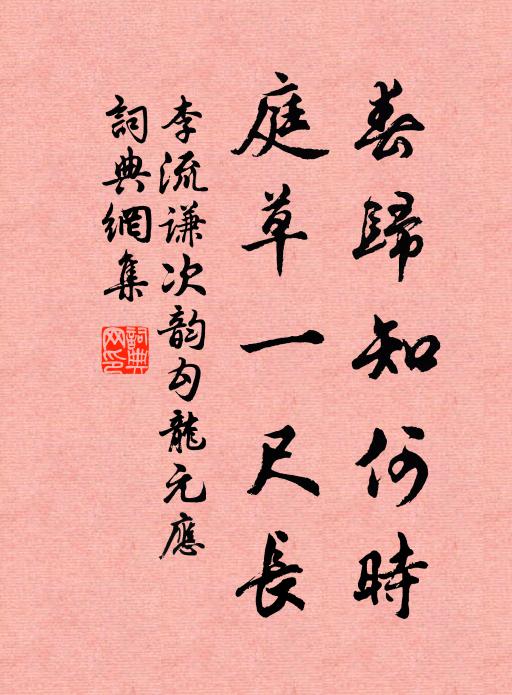 春歸知何時
庭草一尺長
李流谦次韵勾龍元應
詞典網集
詞典網印